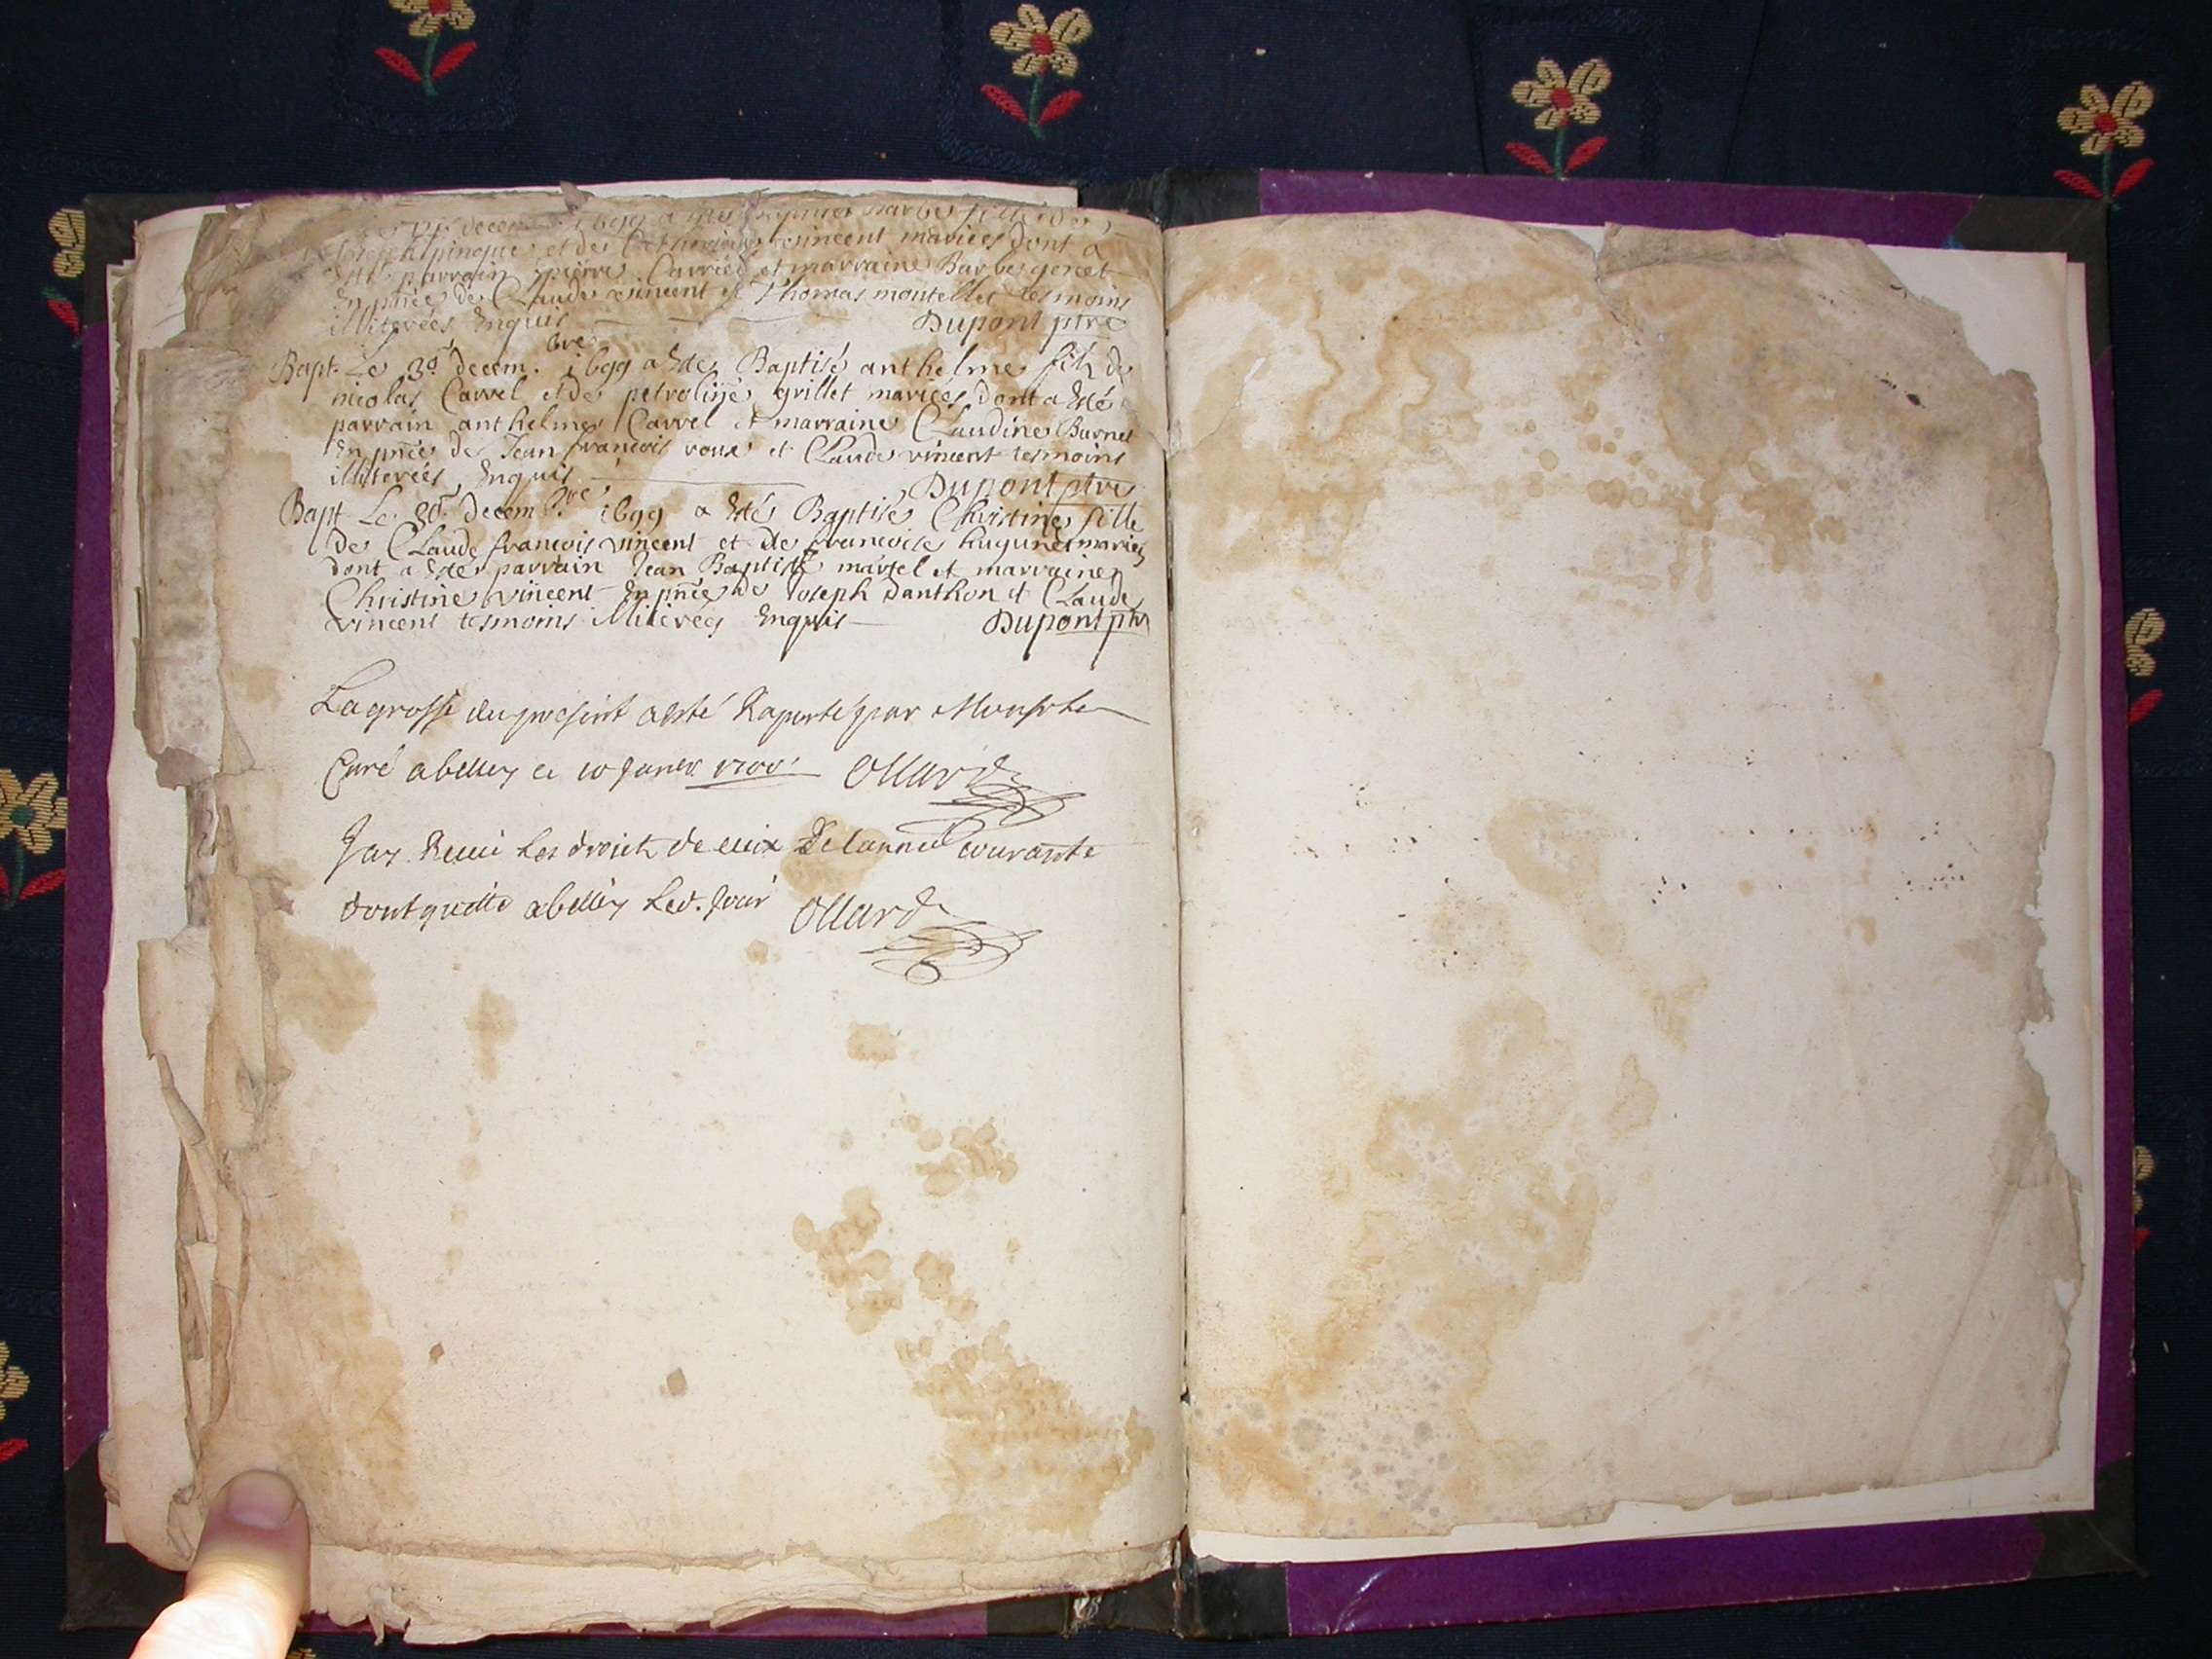 decem 1699 a este barbe fille de
joseph pingque et de Catherine vincent mariées dont a
Este parrain pierre Carrier et marraine Barbe genet
En pñce de Claude vincent et Thomas montellet tesmoins
illiterées Enquis Dupont ptre
Bapt. Le 30 decem.bre 1699 a Este Baptisé anthelme fils de
nicolas Carrel et de petroline grillet mariées dont a Esté
parrain anthelme Carrel et marraine Claudine Burnet
En pñce de Jean francois roux et Claude vincent tesmoins
illiterées Enquis Dupont ptre
Bapt Le 30 decem.bre 1699 a Esté Baptisé Christine fille
de Claude francois vincent et de francoise mariés
dont a Este parrain Jean Baptiste martel et marraine
Christine vincent En pñce de Joseph danthon et Claude
vincent tesmoins illiterées Enquis Dupont ptre
La grosse du present a esté Raporté par Monsr le
Curé a belley ce 10 Janvr 1700 Ollard
Jay Receu les droits de celle de lannée courante
dont quitte a belley led. Jour Ollard